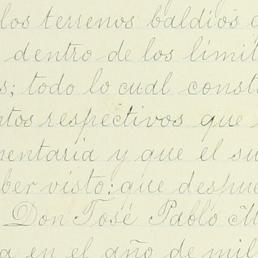 los terrenos baldíos
dentro de los límit
s; todo lo cual const
ntos respectivos que
mentaria y que el su
ber visto; que despue
Don José Pablo M
a en el año de mil